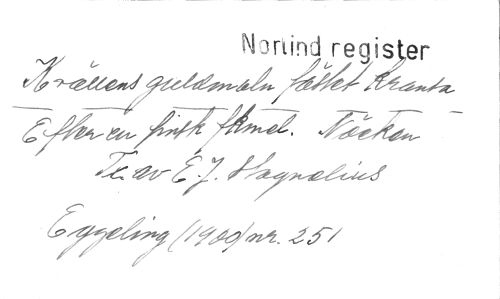 Norlind register
Kvällens guldmoln fästet kransa
Efter en finsk fkmel. Näcken
Tx. av E. J. Stagnelius
Eggeling (1909) nr. 251